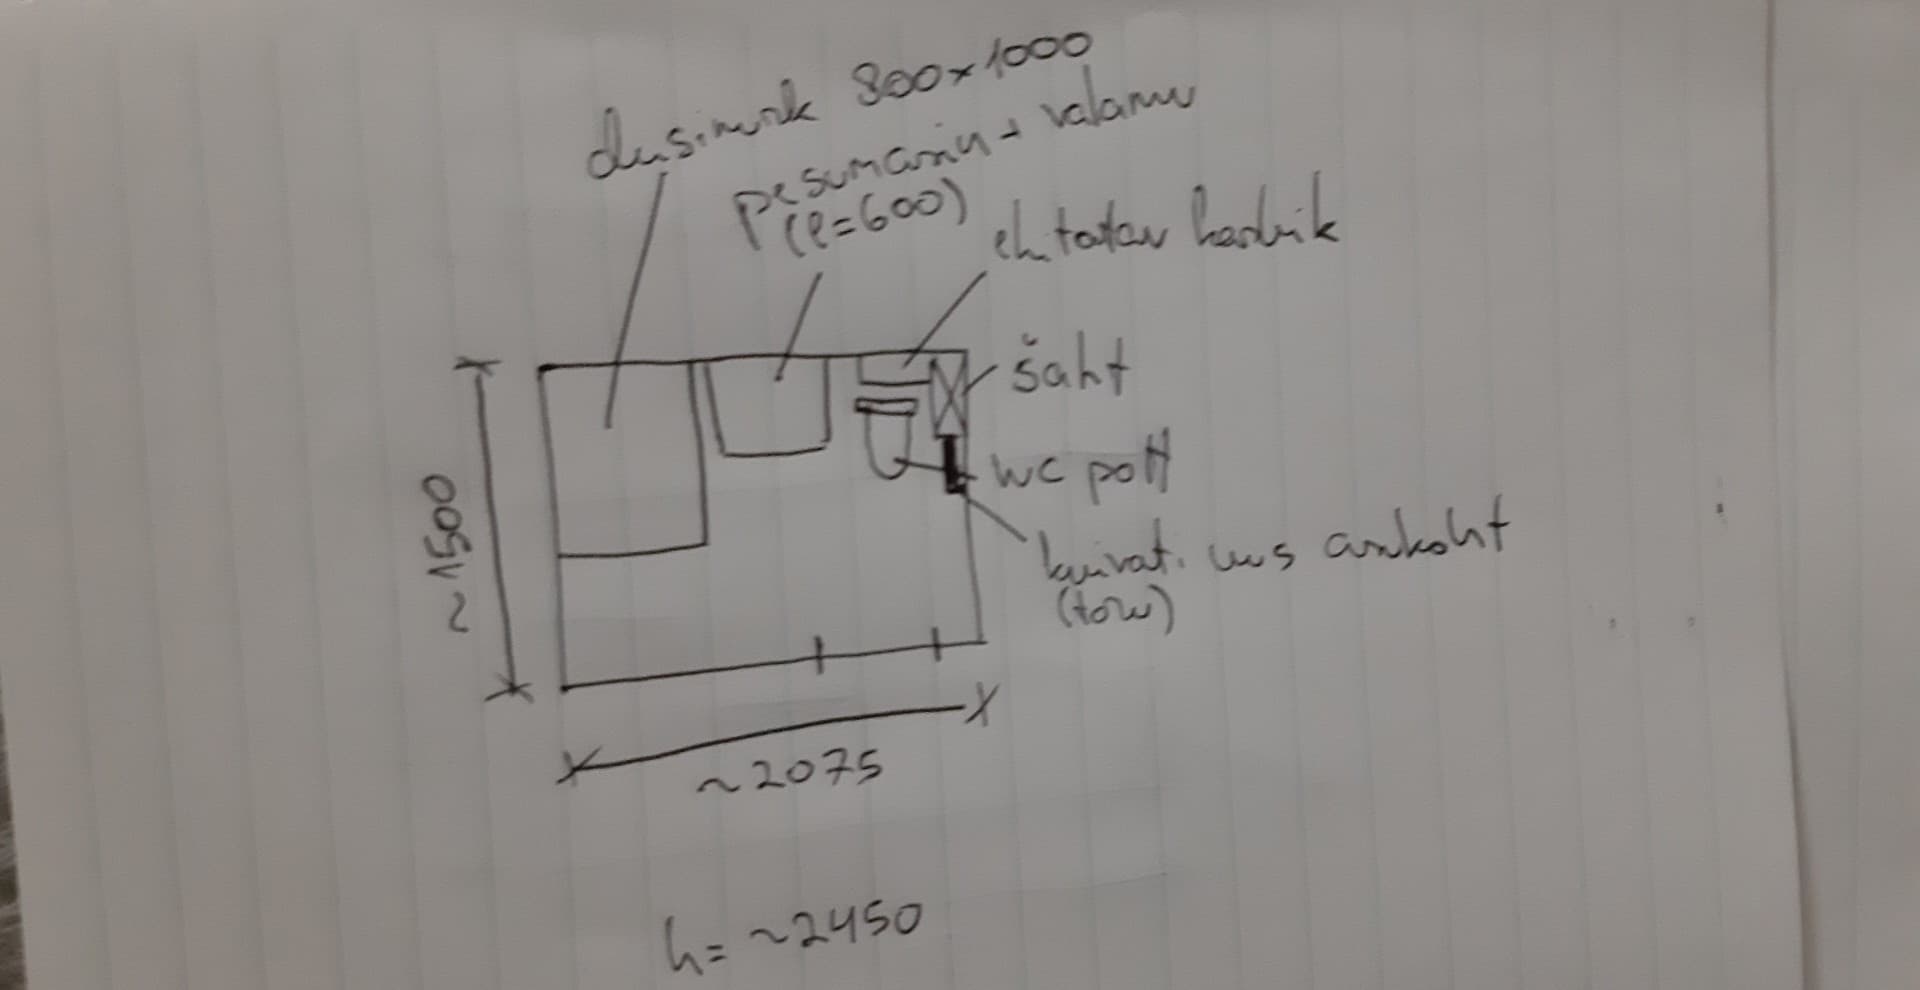 dušinurk 800x1000
pesumasin + valamu
(l=600)
ehitatav
šaht
wc pott
kuivat. uus asukoht
(toru)
~1500
~2075
h= ~2450